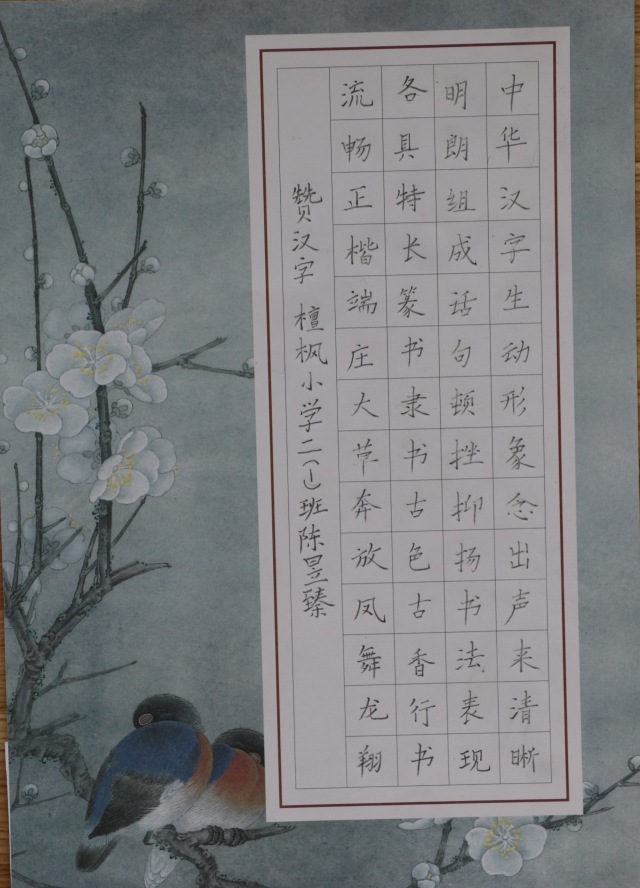 中华汉字生动形象念出声来清晰
明朗组成话句顿挫抑扬书法表现
各具特长篆书隶书古色古香行书
流畅正楷端庄大草奔放凤舞龙翔
赞汉字 檀枫小学二(1)班陈昱臻